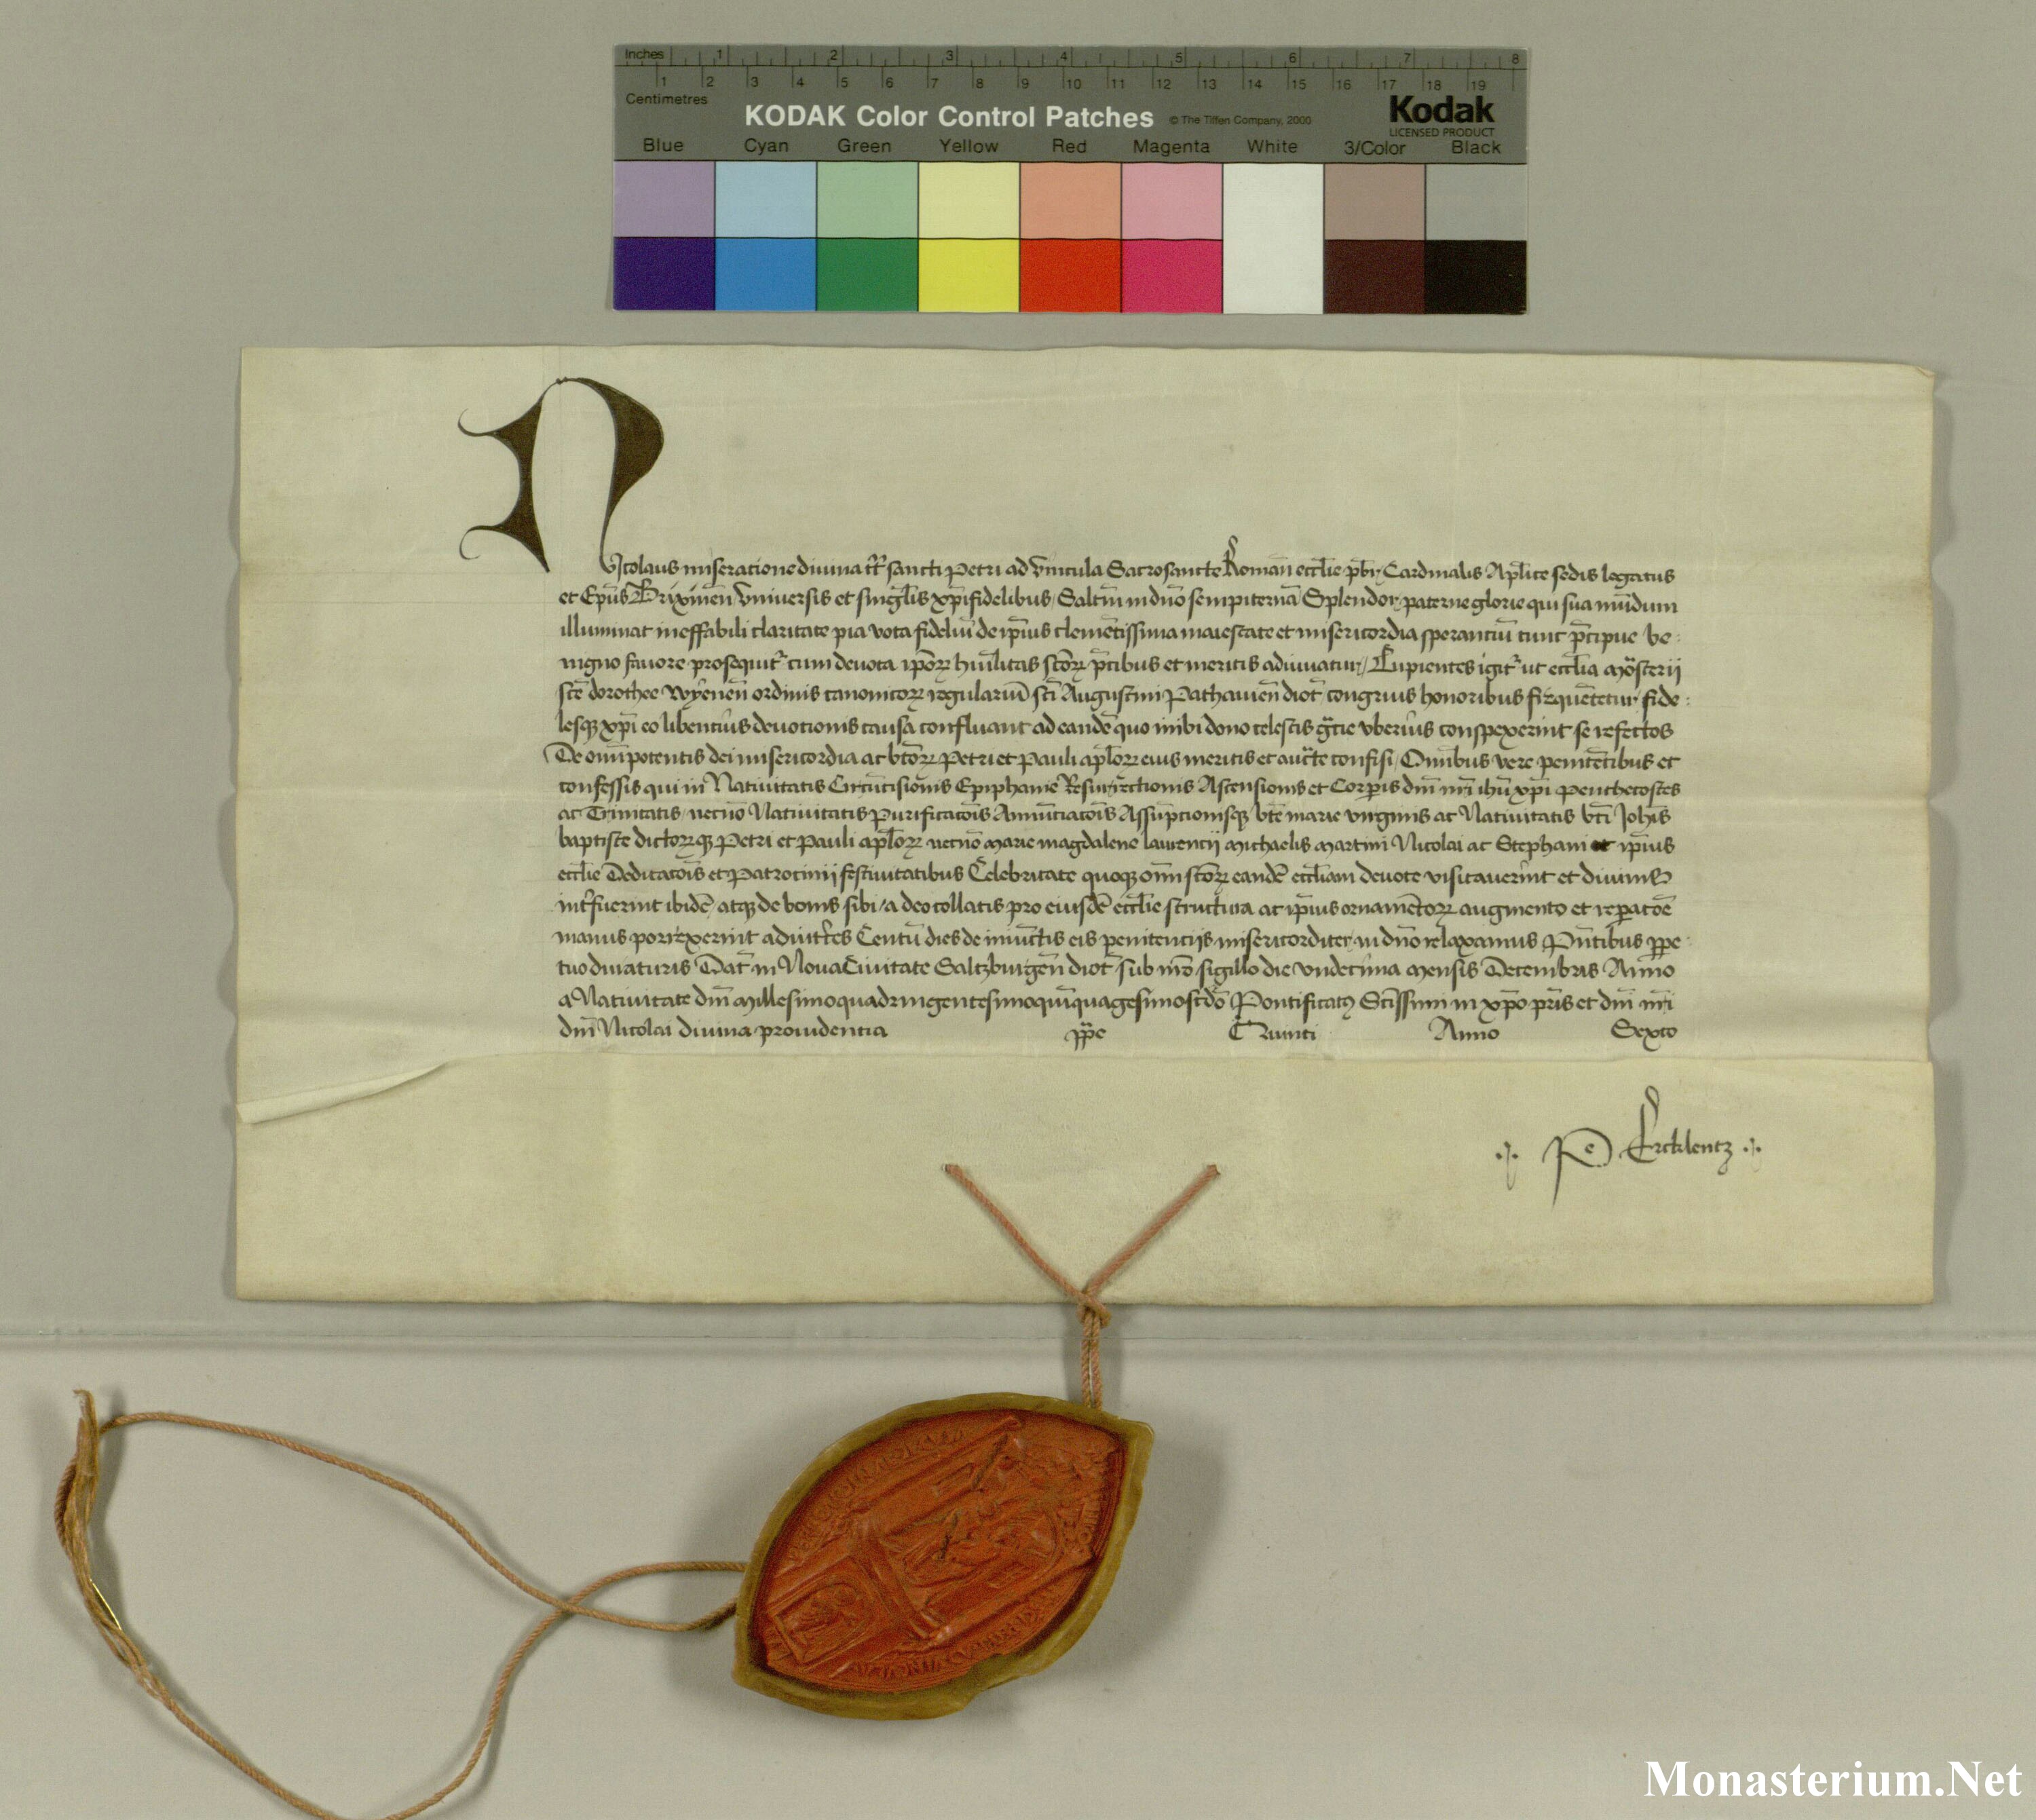 Inches 1 2 3 4 5 6 7 8
1 2 3 4 5 6 7 8 9 10 11 12 13 14 15 16 17 18 19
Centimetres
KODAK Color Control Patches © The Tiffen Company, 2000 Kodak
LICENSED PRODUCT
Blue Cyan Green Yellow Red Magenta White 3/Color Black
Nicolaus miseratione divina tt̄ sancti Petri ad vincula Sacrosancte Roman̄ eccl̄ie pb̄r Cardinalis Apl̄ice sedis legatus
et Ep̄us Brixinen̄ Vniuersis et singl̄is xp̄ifidelibus Saltm̄ in dn̄o sempiternā Splendor paterne glorie qui sua mūdum
illuminat ineffabili claritate pia vota fideliū de ip̄ius clemētissima maiestate et misericordia sperantiū tunc p̄cipue be:
nigno fauore prosequitr̄ cum deuota ip̄oꝝ hūilitas sc̄oꝝ p̄cibus et meritis adiuuatur Cupientes igitr̄ ut eccl̄ia mōsterii
sc̄e dorothee wyēnen̄ ordinis canonicoꝝ regulariū sc̄i Augustini Patauien̄ dioc̄ congruis honoribus frequētetur fide:
lesqꝫ xp̄i eo libentius deuotionis causa confluant ad eandē quo inibi dono celestis gr̄e vberius conspexerint se refectos
De om̄ipotentis dei misericordia ac bt̄oꝝ Petri et Pauli apl̄oꝝ eius meritis et auc̄te confisi Om̄ibus vere penitētibus et
confessis qui in Natiuitatis Circūcisionis Epiphanie Resurrectionis Ascensionis et Corp̄is dn̄i nr̄i ihū xp̄i Penthecostes
ac Trinitatis necnō Natiuitatis Purificatōis Annūtiatōis Assūptionisqꝫ bt̄e marie virginis ac Natiuitatis bt̄i Joh̄is
baptiste dictoꝝqꝫ Petri et Pauli apl̄oꝝ necnō marie magdalene laurencij michaelis martini Nicolai ac Stephani et ip̄ius
eccl̄ie Dedicatōis et Patrocinij festiuitatibus Celebritate quoqꝫ om̄i sc̄oꝝ eandē eccl̄iam deuote visitauerint et diuinis
int̄fuerint ibidē atqꝫ de bonis sibi a deo collatis pro eiusdē eccl̄ie structura ac ip̄ius ornamētoꝝ augmento et rep̄atōe
manus porrexerint adiut̄ces Centū dies de iniūctis eis penitencijs misericorditer in dn̄o relaxamus Pn̄tibus ꝑpe:
tuo duraturis Dat̄ in Noua Ciuitate Saltzburgen̄ dioc̄ sub nr̄o sigillo die vndecima mensis Decembris Anno
a Natiuitate dn̄i millesimoquadringentesimoquīquagesimoscd̄o Pontificatꝰ Sc̄issimi in xp̄o pr̄is et dn̄i nr̄i
dn̄i Nicolai diuina prouidentia pp̄e Quinti Anno Sexto
Pe Ercklentz
Monasterium.Net